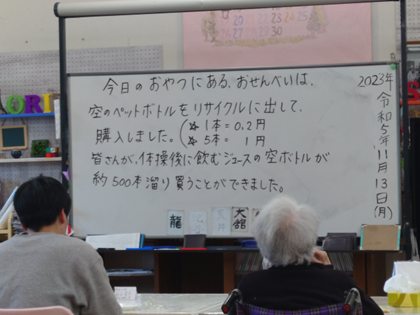 今日のおやつにある、おせんべいは、
空のペットボトルをリサイクルに出して、
購入しました。(☆1本=0.2円
☆5本= 1円
皆さんが、体操後に飲むジュースの空ボトルが
約500本溜り買うことができました。
2023年
令和5年
11月
13日
(月)
龍
大館
ORI